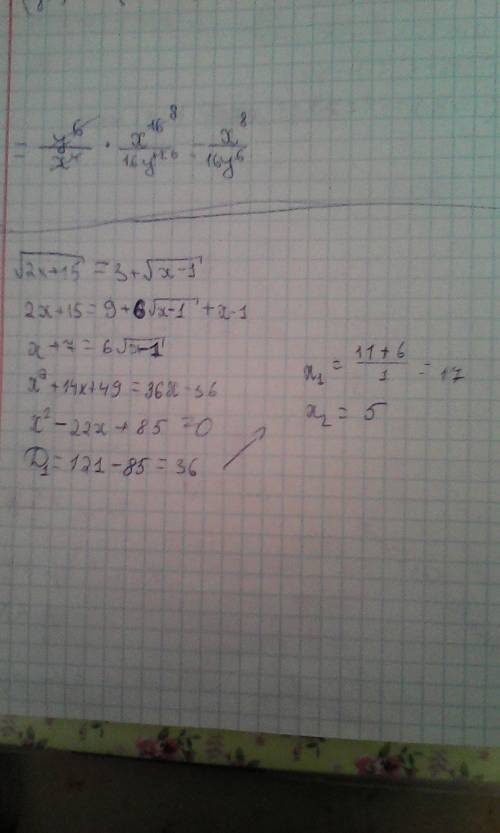 = y⁶/x⁴ · x¹⁶ ⁸/16y = x⁸/16y⁶
√2x+15 = 3+√x-1
2x+15 = 9+6√x-1 + x-1
x+7 = 6√x-1
x²+14x+49 = 36x-36
x²-22x+85 = 0
D₁ = 121-85 = 36
x₁ = 11+6/1 = 17
x₂ = 5